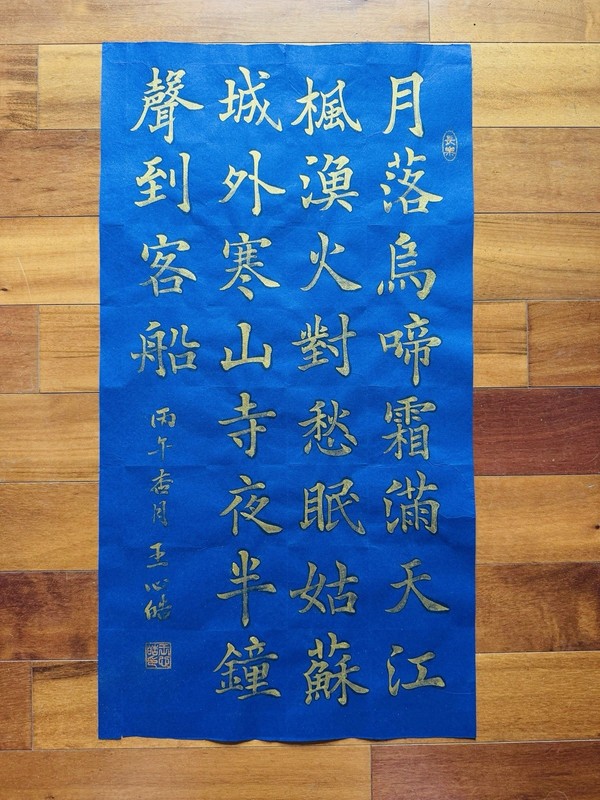 月落烏啼霜滿天江
長樂
楓漁火對愁眠姑蘇
城外寒山寺夜半鐘
聲到客船
丙午杏月王心皓